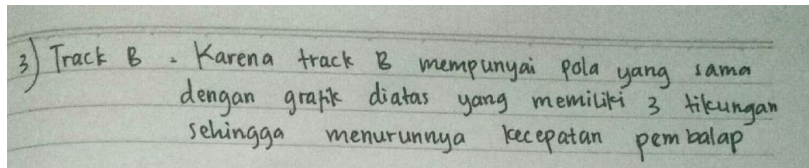 3) Track B. Karena track B mempunyai pola yang sama
dengan grafik diatas yang memiliki 3 tikungan
sehingga menurunnya kecepatan pembalap